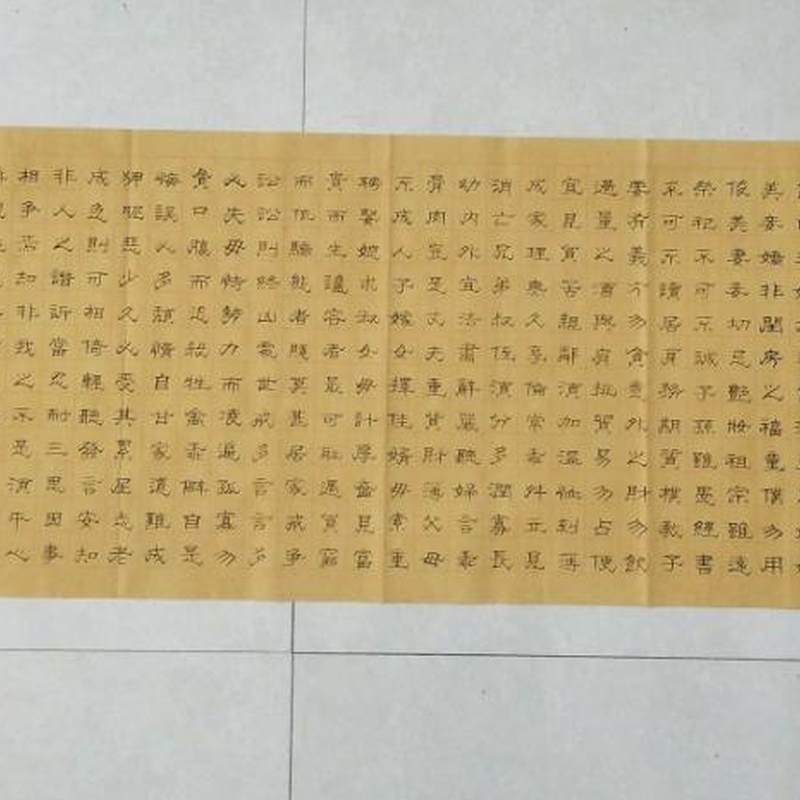 美妾嬌非閨房之福童僕勿用
俊美妻妾切忌艷妝祖宗雖遠
祭祀不可不誠子孫雖愚經書
不可不讀居身務期質樸教子
要有義方勿貪意外之財勿飲
過量之酒與肩挑貿易勿占便
宜見貧苦親鄰須加溫恤刻薄
成家理無久享倫常乖舛立見
消亡兄弟叔侄須分多潤寡長
幼內外宜法肅辭嚴聽婦言乖
骨肉豈是丈夫重貲財薄父母
不成人子嫁女擇佳婿毋索重
聘娶媳求淑女毋計厚奩見富
貴而生諂容者最可恥遇貧窮
而作驕態者賤莫甚居家戒爭
訟訟則終凶處世戒多言言多
必失毋恃勢力而凌逼孤寡勿
貪口腹而恣殺牲禽乖僻自是
悔誤必多頹惰自甘家道難成
狎昵惡少久必受其累屈志老
成急則可相倚輕聽發言安知
非人之譖訴當忍耐三思因事
相爭焉知非我之不是須平心